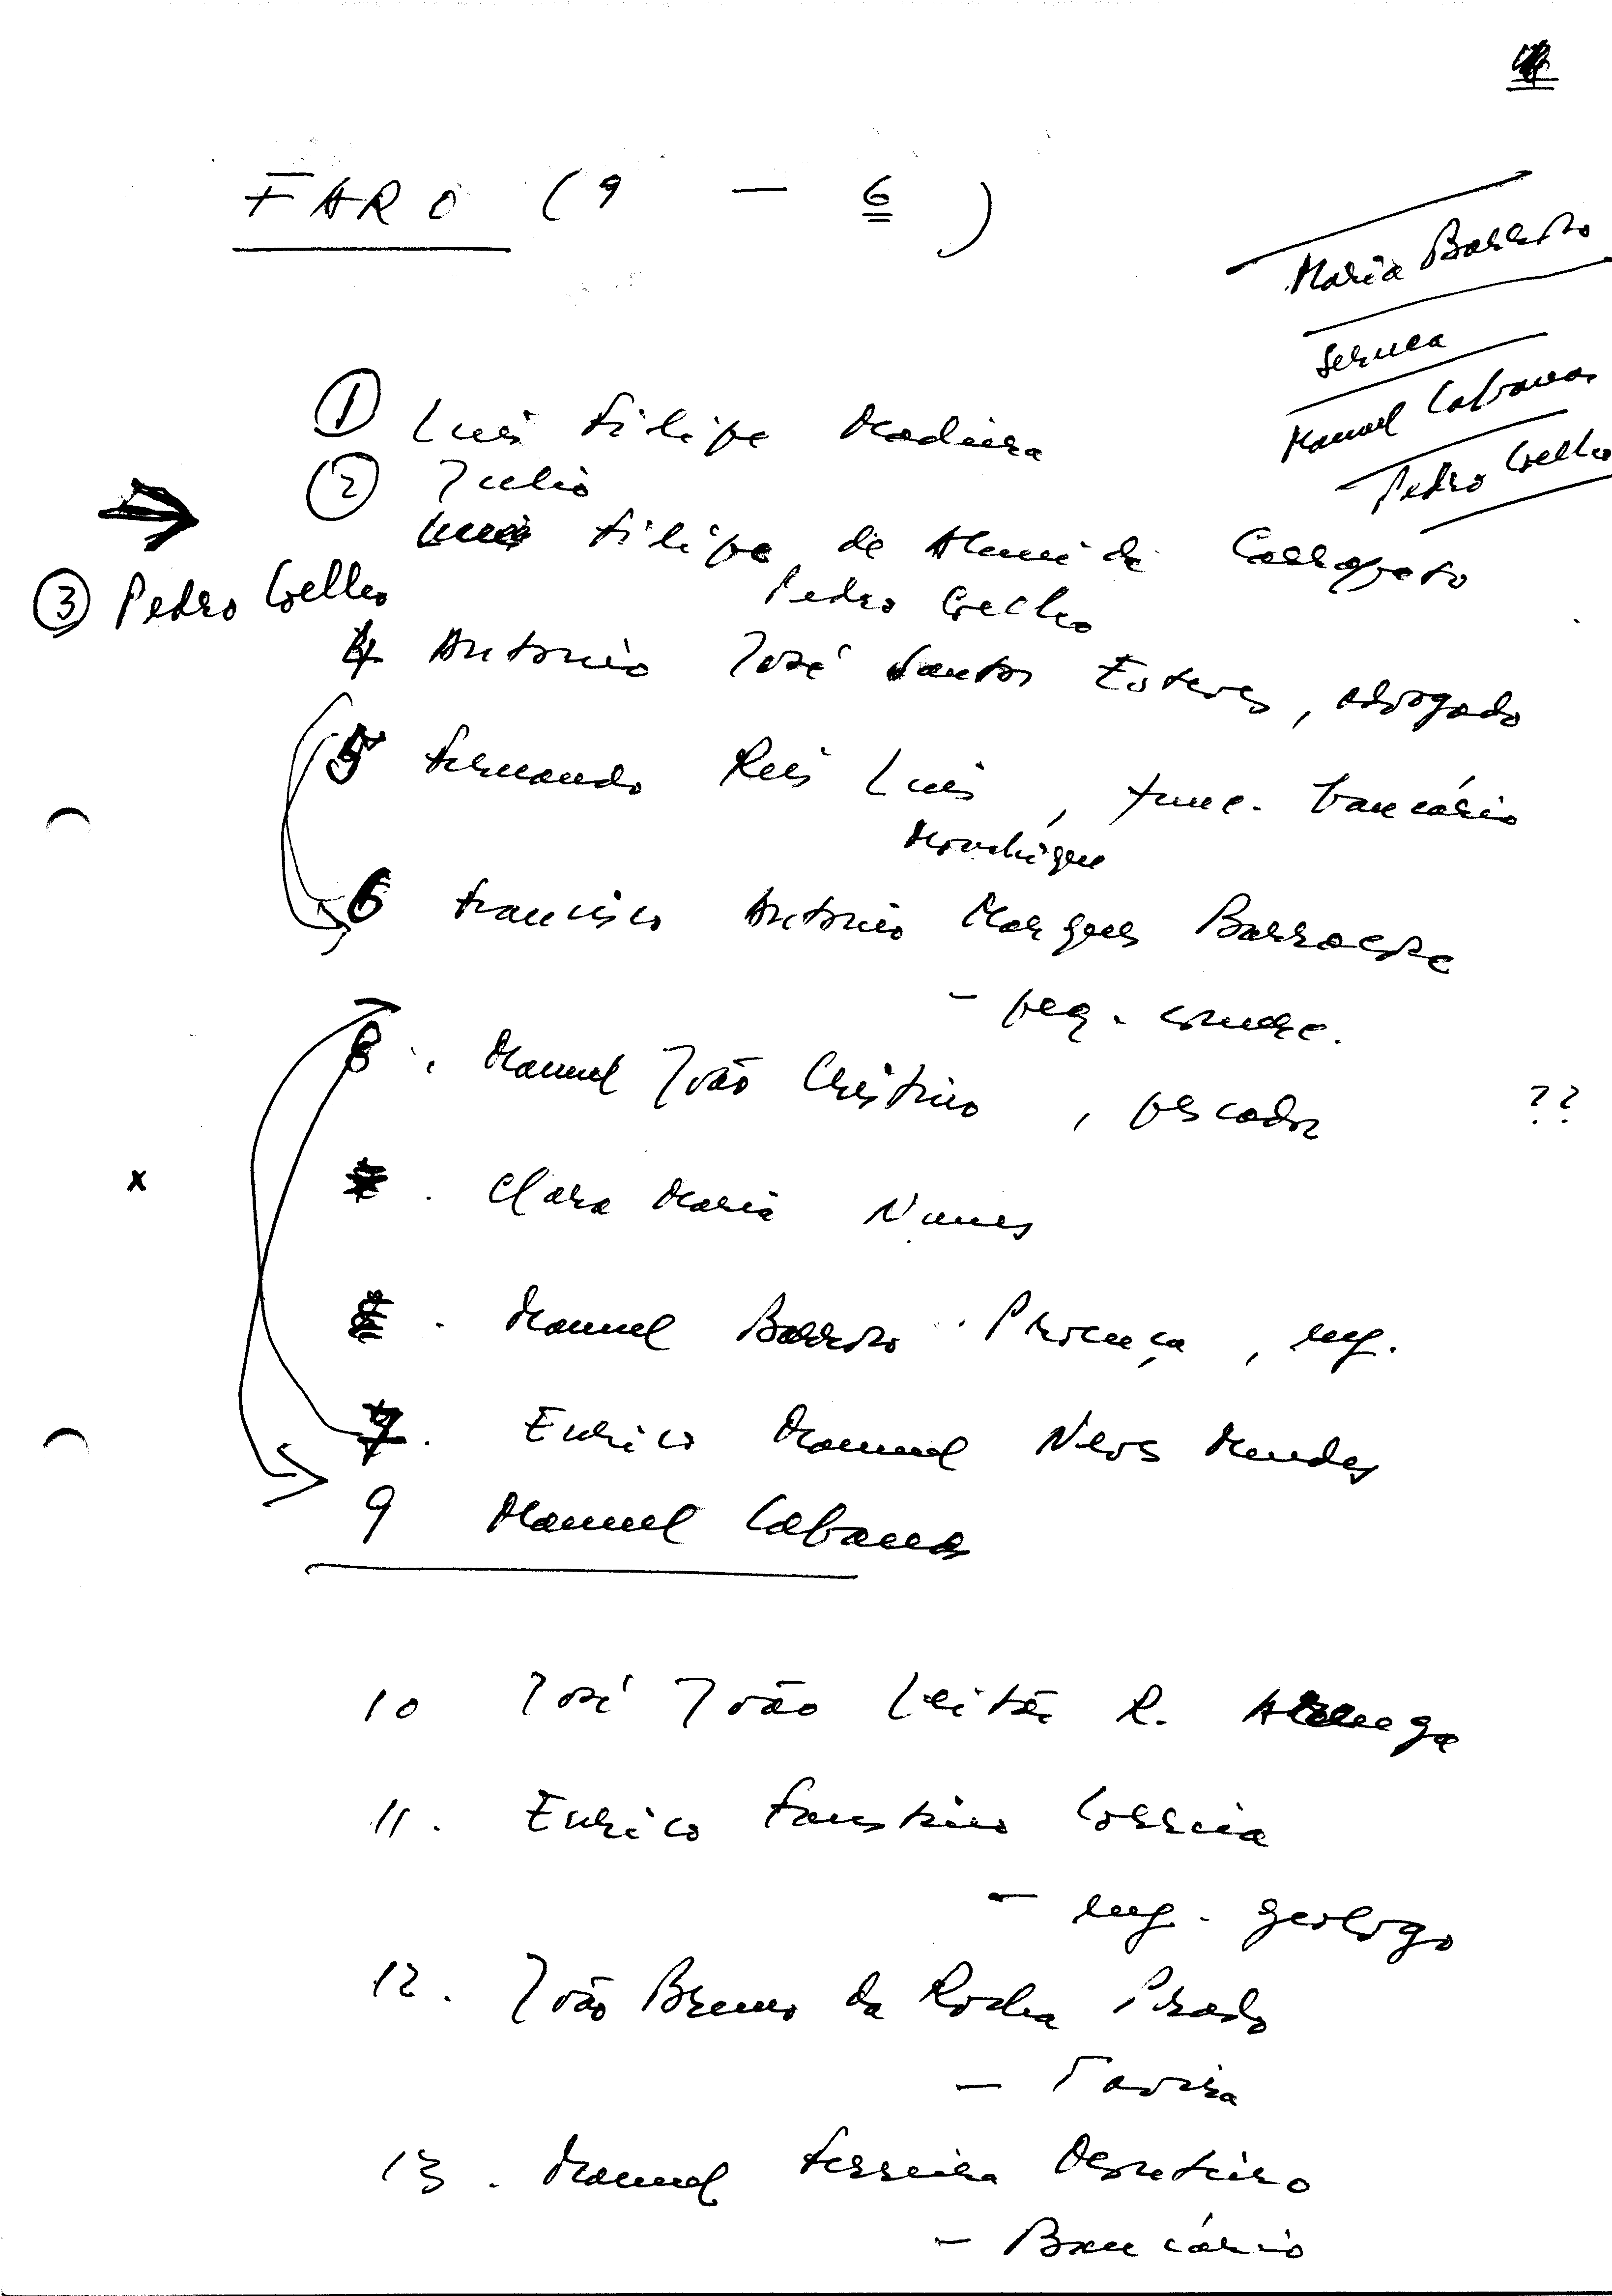 FARO (9 — 6)
Maria Barroso
Seruca
Manuel Cabanas
Pedro Coelho
1 Luis Filipe Madeira
2 Julio
Filipe de Almeida Carrapato
3 Pedro Coelho
Pedro Coelho
4 Antonio José Santos Esteves, advogado
5 Fernando Reis Luis, func. bancário
Monchique
6 Francisco Antonio Marques Barracosa
- peq. comerc.
8. Manuel João Cristino, pescador ??
x . Clara Maria Nunes
8. Manuel Barroso Proença, eng.
7. Eurico Manuel Neves Mendes
9 Manuel Cabanas
10 José João Leitão R.
11. Eurico Faustino Correia
- eng. geologo
12. João Bruno da Rocha Prado
- Tavira
13. Manuel Ferreira
- Bancário